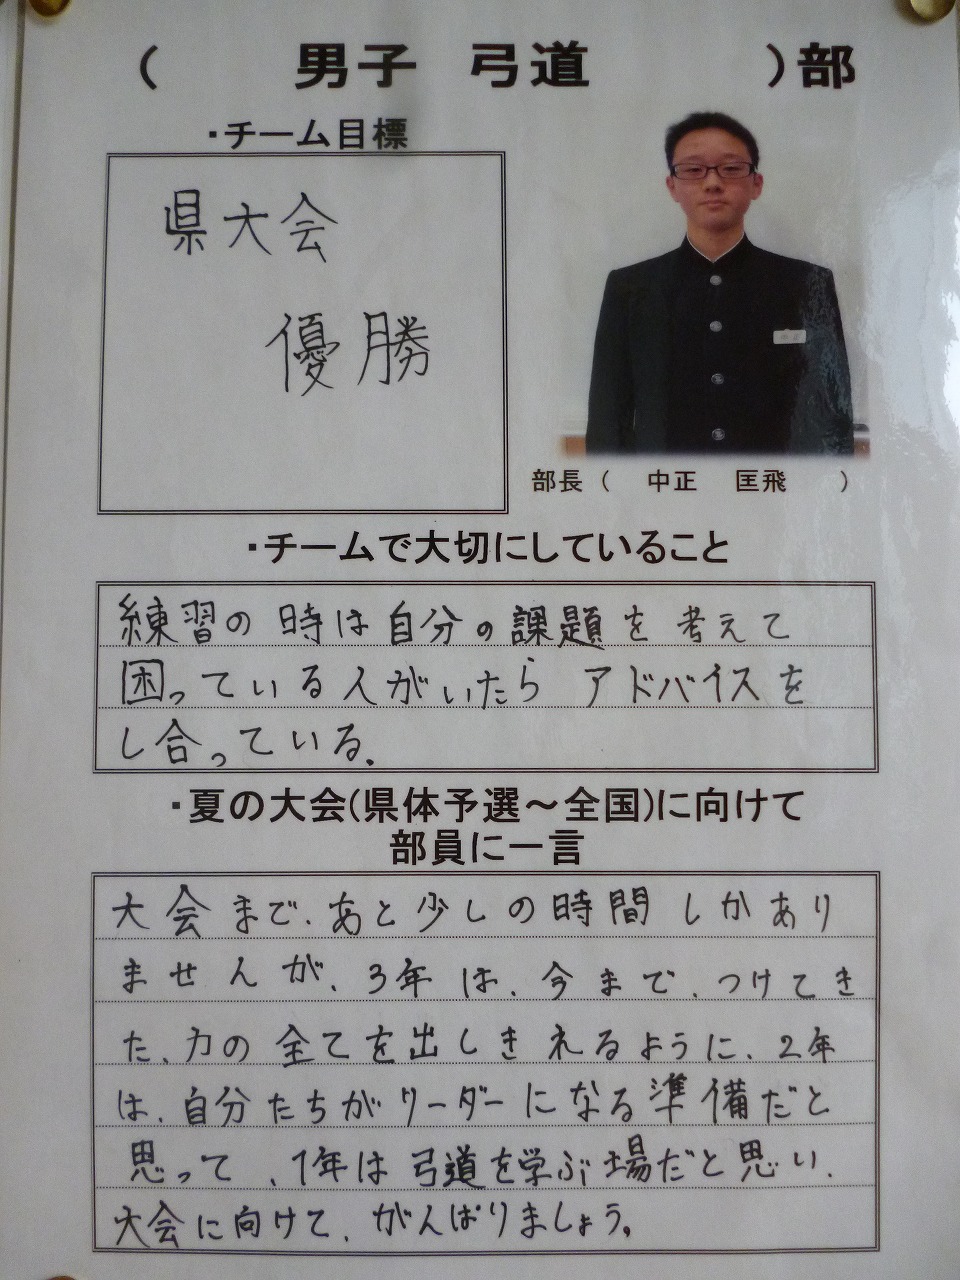 ( 男子 弓道 )部
・チーム目標
県大会
優勝
部長 ( 中正 匡飛 )
・チームで大切にしていること
練習の時は自分の課題を考えて
困っている人がいたら アドバイスを
し合っている.
・夏の大会(県体予選～全国)に向けて
部員に一言
大会まで、あと少しの時間しかあり
ませんが、3年は、今まで、つけてき
た、力の全てを出しきれるように、2年
は、自分たちがリーダーになる準備だと
思って、1年は弓道を学ぶ場だと思い、
大会に向けて、がんばりましょう。